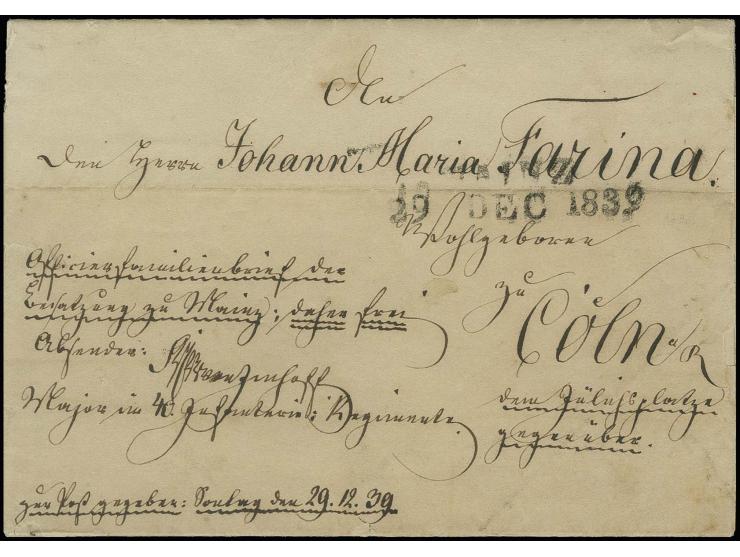 An
den Herrn Johann Maria Farina.
MAINZ
29 DEC 1839
Wohlgeboren
zu
Cöln a/R
dem Jülichsplatze
gegenüber.
Officiersfamilienbrief der
Besatzung zu Mainz; daher frei
Absender:
Major im 40. Infanterie: Regimente.
zur Post gegeben: Sontag den 29.12.39.